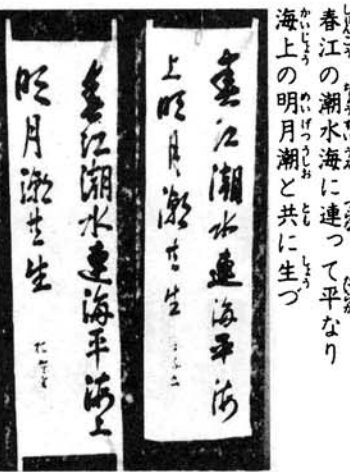 春江の潮水海に連って平なり
海上の明月潮と共に生づ
春江潮水連海平海
上明月潮共生
春江潮水連海平海上
明月潮共生